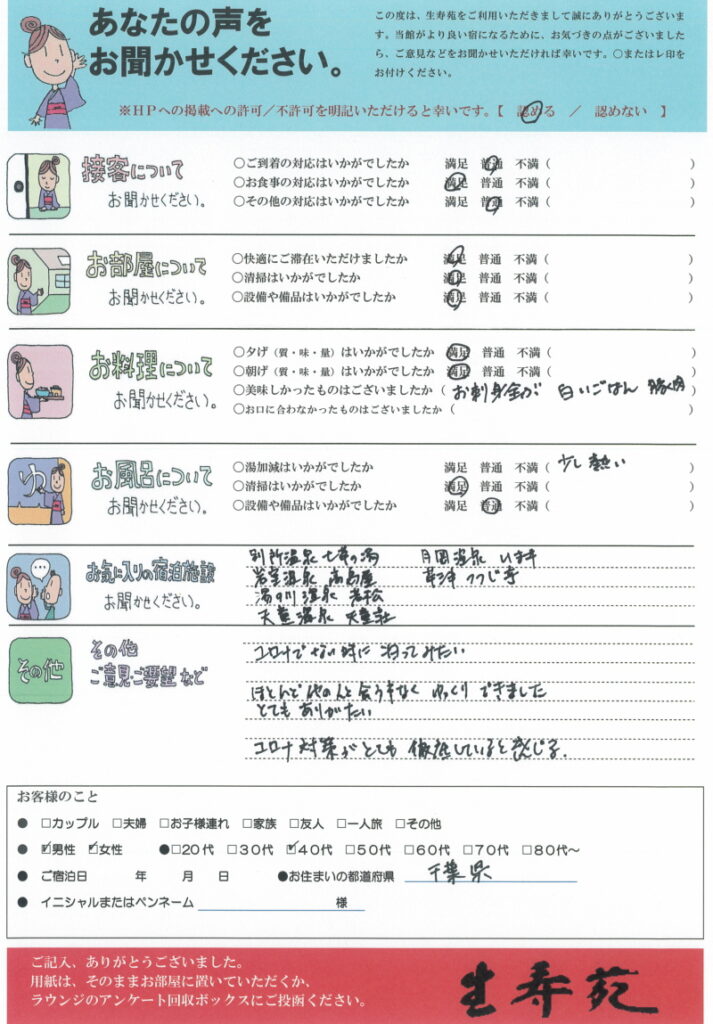 あなたの声を
お聞かせください。
この度は、生寿苑をご利用いただきまして誠にありがとうございま
す。当館がより良い宿になるために、お気づきの点がございました
ら、ご意見などをお聞かせいただければ幸いです。○またはレ印を
お付けください。
※HPへの掲載への許可／不許可を明記いただけると幸いです。【　認める　／　認めない　】
接客について
お聞かせください。
○ご到着の対応はいかがでしたか　満足　普通　不満（　）
○お食事の対応はいかがでしたか　満足　普通　不満（　）
○その他の対応はいかがでしたか　満足　普通　不満（　）
お部屋について
お聞かせください。
○快適にご滞在いただけましたか　満足　普通　不満（　）
○清掃はいかがでしたか　満足　普通　不満（　）
○設備や備品はいかがでしたか　満足　普通　不満（　）
お料理について
お聞かせください。
○夕げ（質・味・量）はいかがでしたか　満足　普通　不満（　）
○朝げ（質・味・量）はいかがでしたか　満足　普通　不満（　）
○美味しかったものはございましたか（お刺身全部　白いごはん　豚肉）
○お口に合わなかったものはございましたか（　）
ゆ
お風呂について
お聞かせください。
○湯加減はいかがでしたか　満足　普通　不満（少し熱い）
○清掃はいかがでしたか　満足　普通　不満（　）
○設備や備品はいかがでしたか　満足　普通　不満（　）
お気に入りの宿泊施設
お聞かせください。
別所温泉　七草の湯　月岡温泉
岩室温泉　高島屋　草津　つつじ亭
湯の川温泉　若松
天童温泉　天童荘
その他
その他
ご意見・ご要望など
コロナでない時に泊ってみたい
ほとんど他の人と会う事なく　ゆっくりできました
とてもありがたい
コロナ対策がとても徹底していると感じる。
お客様のこと
● □カップル　□夫婦　□お子様連れ　□家族　□友人　□一人旅　□その他
● ☑男性　☑女性　●□20代　□30代　☑40代　□50代　□60代　□70代　□80代～
● ご宿泊日　年　月　日　●お住まいの都道府県　千葉県
● イニシャルまたはペンネーム　様
ご記入、ありがとうございました。
用紙は、そのままお部屋に置いていただくか、
ラウンジのアンケート回収ボックスにご投函ください。
生寿苑